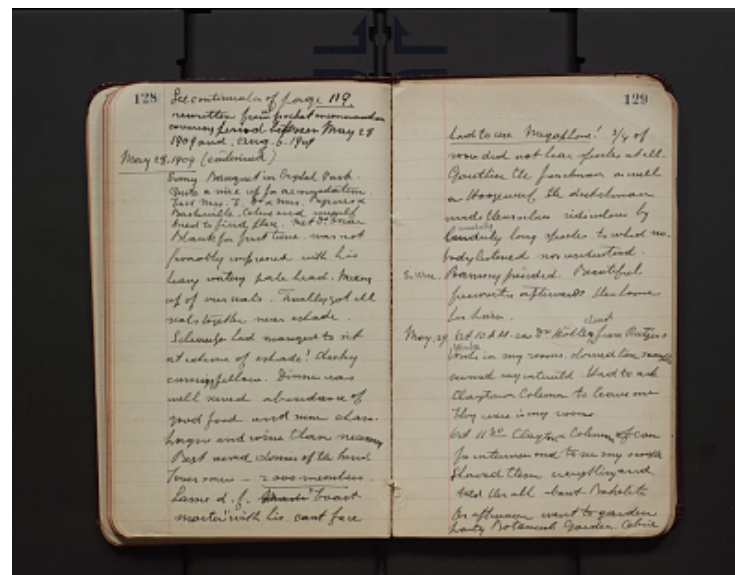 128
See continuation of page 119
rewritten from pocket memorandum
covering period between May 28
1909 and Aug. 6. 1909
May 28. 1909 (continued)
Banquet in Crystal Park.
Quite a mix up for accomodation
Mrs.
Baskerville, Celine and myself
tried to find place. Met Dr.
Blank for first time. was not
favorably impressed with his
heavy watery pale head. Mixing
up of our seats. Finally got all
seats together near estrade.
had managed to sit
at extreme of estrade! cheeky
cunning fellow. Dinner was
well served abundance of
good food and more cham-
pagne and wine than necessary
Best served dinner of the kind
I ever saw - 2000 members
toast
master with his cant face
129
had to use Megaphone! 3/4 of
room did not hear speeches at all.
Gauthier the frenchman as well
as Hoogewerff the dutchman
made themselves ridiculous by
long speeches to which no-
body listened nor understood.
Harmony presided. Beautiful
fireworks afterwards then home
for him.
May. 29. At 10 A.M. Dr from Rutgers
Work in my rooms.
seemed very Had to ask
Clayton & Coleman to leave me
They were in my rooms.
At 11 30 Clayton Coleman
for interview and to see my samples
Showed them everything and
told them all about Bakelite
In afternoon went to garden
party Botanical Garden. Celine